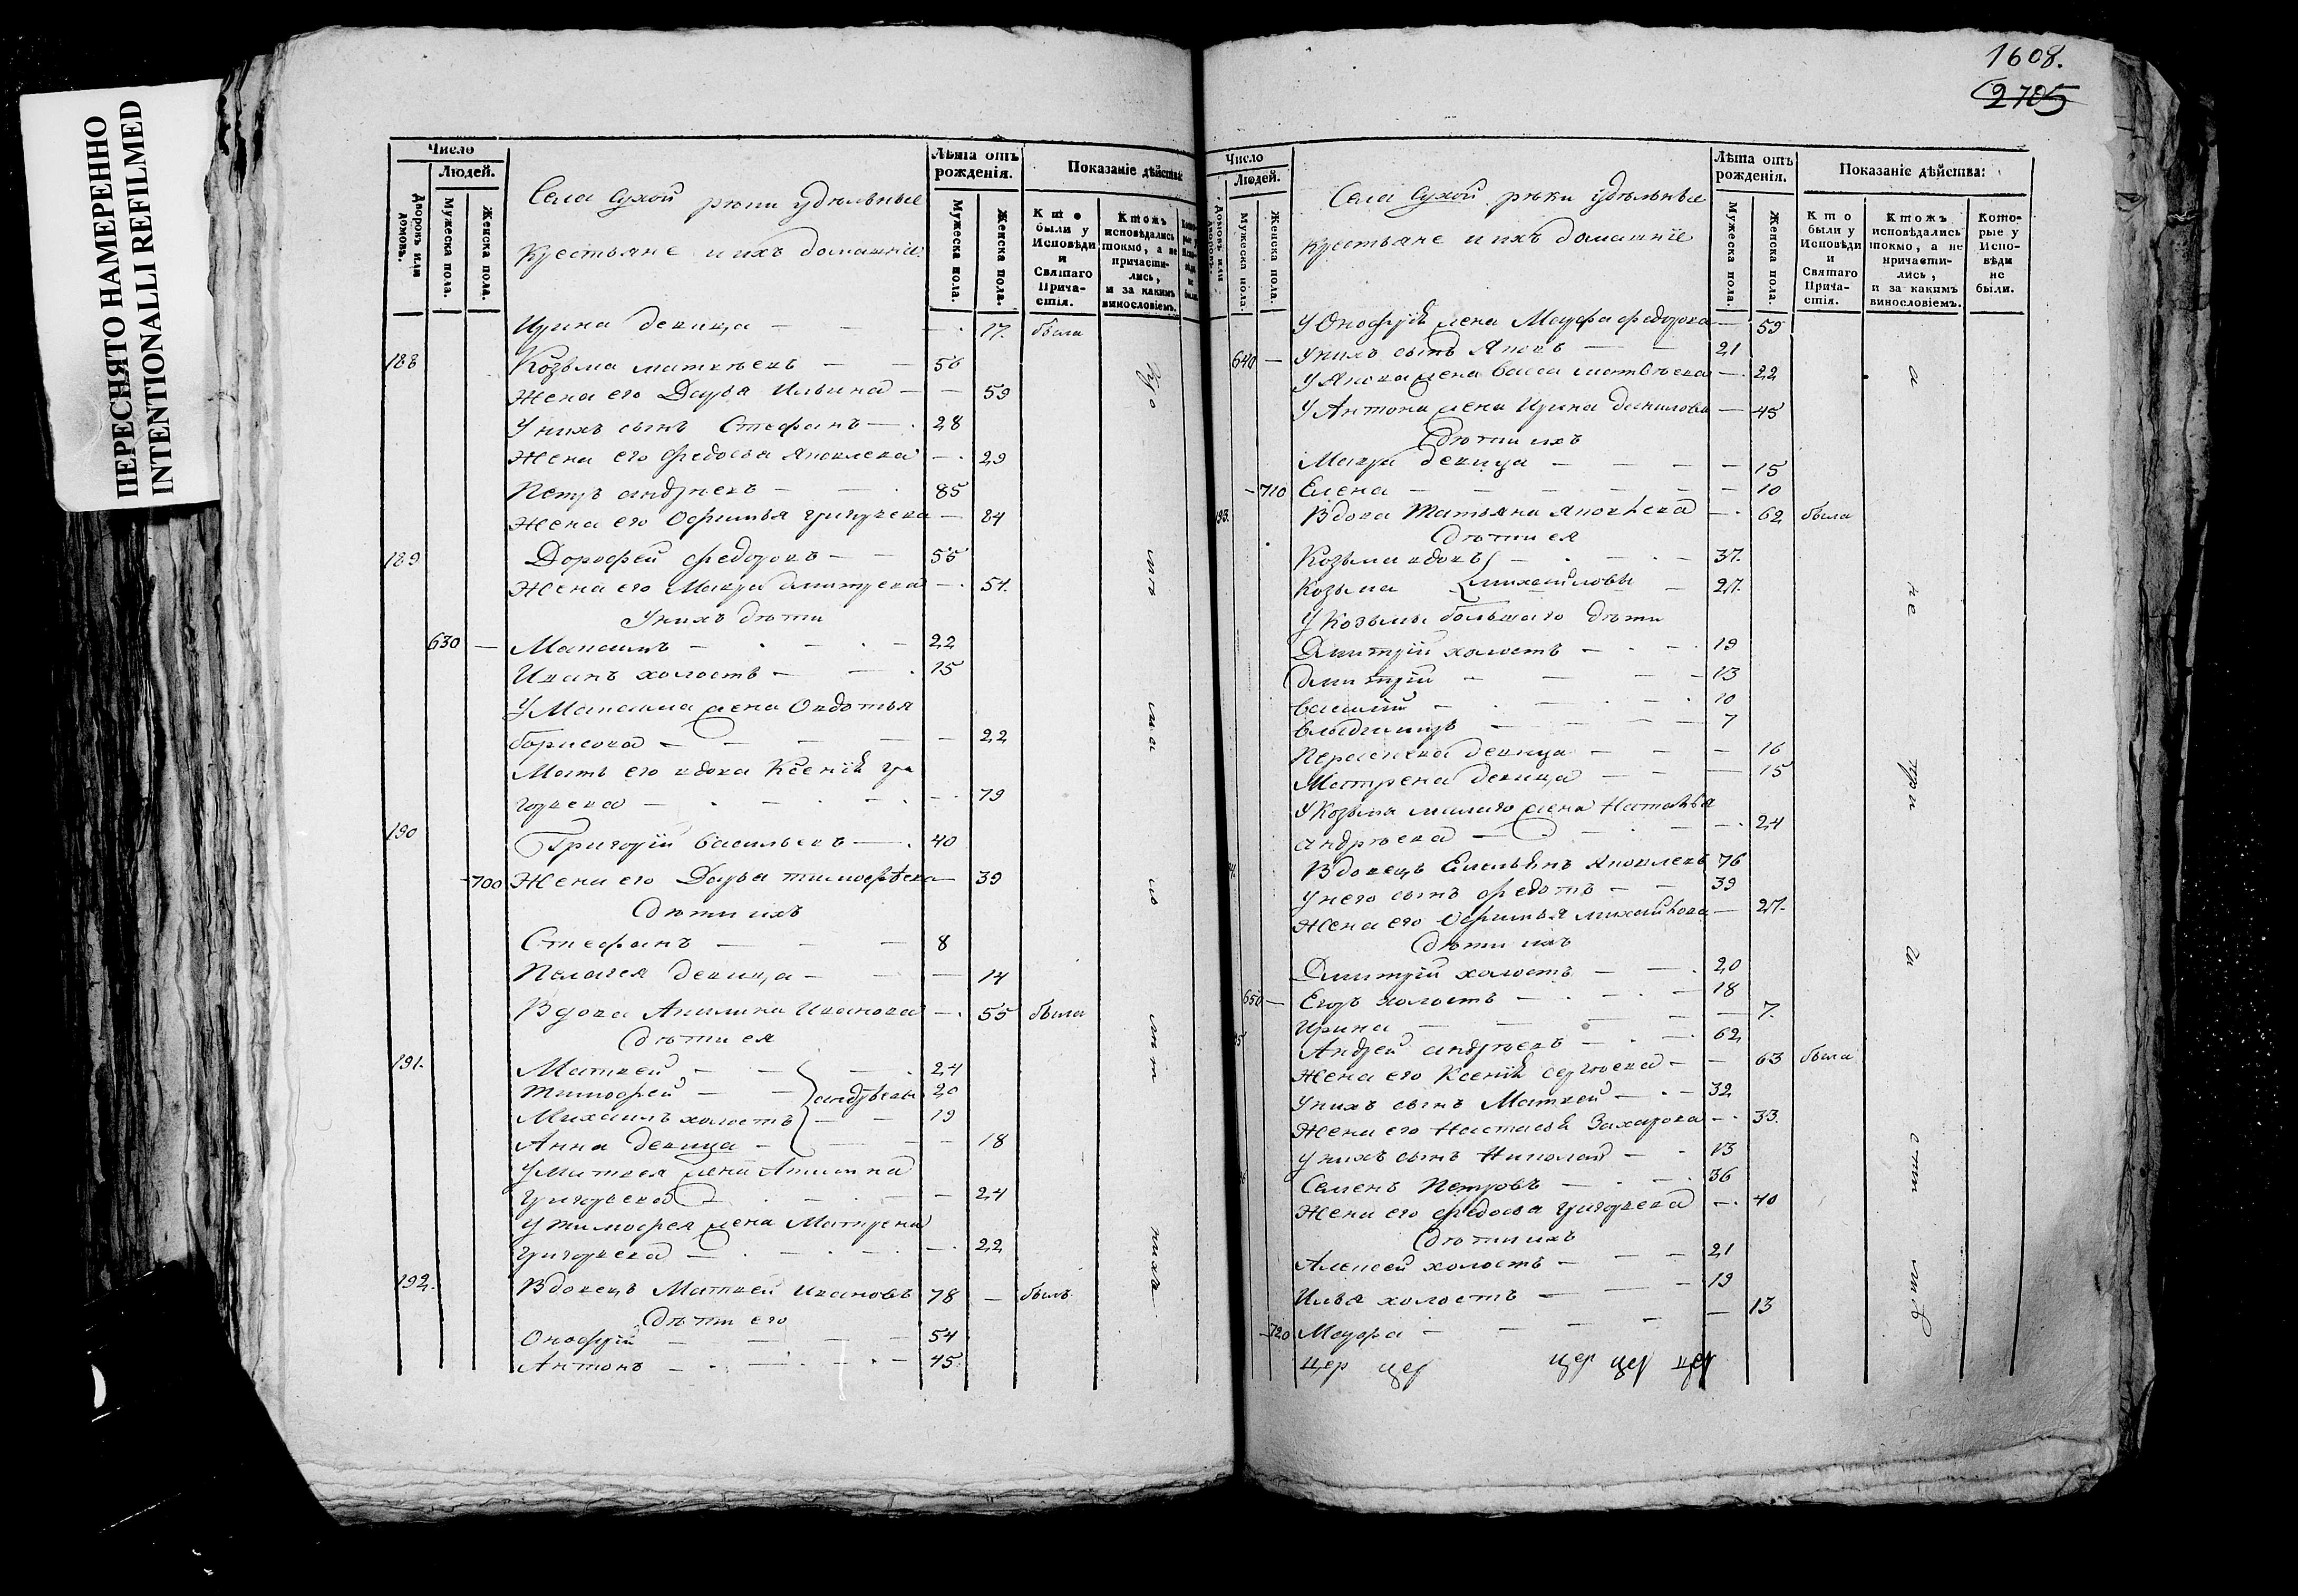 ПЕРЕСНЯТО НАМЕРЕННО
INTENTIONALLI REFILMED
Число
Людей.
Дворовъ или домовъ.
Мужеска пола.
Женска пола.
Села Сухой рѣки удѣльные
крестьяне и ихъ домашніе
Лѣта отъ рожденія.
Мужеска пола.
Женска пола.
Показаніе дѣйства:
Кто были у Исповѣди и Святаго Причастія.
Ктожъ исповѣдались токмо, а не причастились, и за какимъ винословіемъ.
Ирина девица — 17. была
188 Козьма матвѣевъ — 56
Жена его Дарья Ильина — 59
У нихъ сынъ Стефанъ — 28
Жена его федосья Яковлева — 29
Петръ андреевъ — 85
Жена его Офимья григорьева — 84
189 Дорофей федоровъ — 55
Жена его Мавра дмитрева — 54.
У нихъ дѣти
630 — Максимъ — 22
Иванъ холостъ — 15
У Максима жена Овдотья
борисова — 22
Мать его вдова Ксенія гри
горьева — 79
190 Григорій васильевъ — 40
-700 Жена его Дарья тимофѣева — 39
Дѣти ихъ
Стефанъ — 8
Пелагея девица — 14
Вдова Акилина Иванова — 55 была
Дѣти ея
191. Матвей — 24
Тимофей — андрѣевы 20
Михаилъ холостъ — 19
Анна девица — 18
У Матвея жена Акилина
григорьева — 24
У тимофея жена Матрена
григорьева — 22
192. Вдовецъ Матвей ивановъ 78 — былъ
Дѣти его
Онофрій — 54
Антонъ — 45.
1608.
2705
Число
Людей.
Мужеска пола.
Женска пола.
Села Сухой рѣки удѣльные
крестьяне и ихъ домашніе
Лѣта отъ рожденія.
Мужеска пола.
Женска пола.
Показаніе дѣйства:
Кто были у Исповѣди и Святаго Причастія.
Ктожъ исповѣдались токмо, а не причастились, и за какимъ винословіемъ.
Которые у Исповѣди не были.
У Онофрія жена Мавра федорова — 59
640 — У нихъ сынъ Яковъ — 21
У Якова жена васса матвѣева — 22
У Антона жена Ирина данилова — 45
Дѣти ихъ
Мавра девица — 15
-710 Елена — 10
193. Вдова Татьяна Яковлева — 62 была
Дѣти ея
Козьма вдовъ — 37.
Козьма михайловы — 27.
У Козьмы большаго дѣти
Дмитрій холостъ — 19
дмитрій — 13
василій — 10
владимиръ — 7
девица — 16
Матрена девица — 15
У Козьмы малаго жена Наталья
андрѣева — 24
Вдовецъ Емельянъ Яковлевъ 76
У него сынъ федотъ — 39
Жена его Офимья михайлова — 27.
Дѣти ихъ
Дмитрій холостъ — 20
650 — Егоръ холостъ — 18
Ирина — 7.
Андрей андрѣевъ — 62
Жена его Ксенія сергѣева — 63 была
У нихъ сынъ Матвей — 32
Жена его Настасья Захарова — 33.
У нихъ сынъ Николай — 13
Семенъ Петровъ — 36
Жена его федосья григорьева — 40
Дѣти ихъ
Алексей холостъ — 21
Илья холостъ — 19
-720 Мавра — 13
цер цер цер цер цер